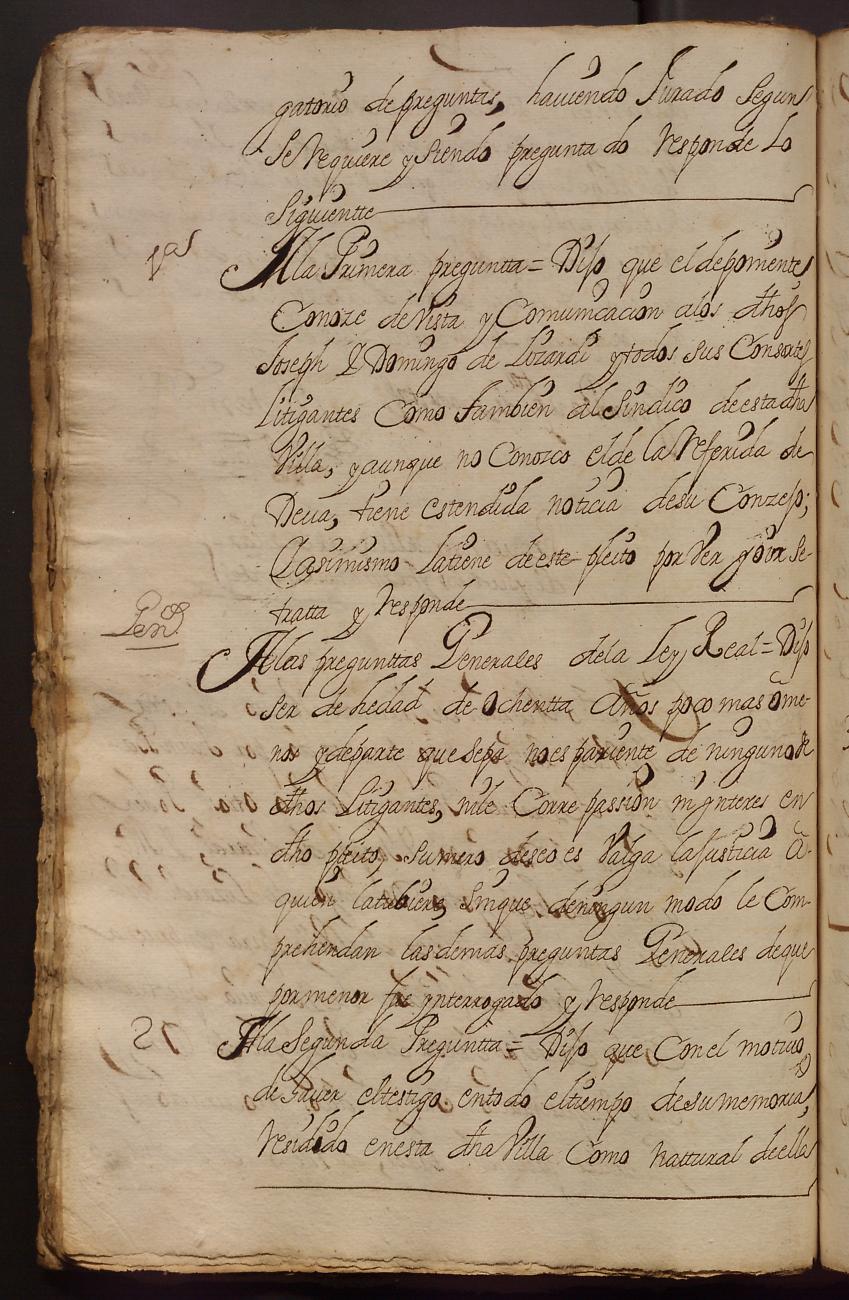 gatorio de preguntas, haviendo Jurado Segun
Se requiere y Siendo preguntado Responde Lo
Siguientte
1ª A la Primera preguntta = Dijo que el deponente
Conoze de Vista y Comunicacion a los dhos
Joseph & Domingo de Lizardi y todos sus Consortes
Litigantes Como tambien al Sindico de esta dha
Villa, y aunque no Conozco el de la Referida de
Deva, tiene estendida noticia de su Conzejo;
Y asimismo La tiene de este pleito por Ver y oir Se
tratta y Responde
Gens. A las pregunttas Generales de la Ley Real = Dijo
Ser de hedad de Ochentta Años poco mas ô me-
nos y de parte que Sepa no es pariente de ninguno de
dhos Litigantes, ni le Corre passion ni ynteres en
dho pleito, Su mero deseo es Valga la Justicia â
quien la tubiere, Sin que de ningun modo le Com-
prehendan las demas preguntas Generales de que
por menor fue ynterrogado y Responde
2ª A la Segunda Preguntta = Dijo que Con el motivo
de haver el testigo en todo el tiempo de su memoria,
residido en esta dha Villa Como nattural de ella